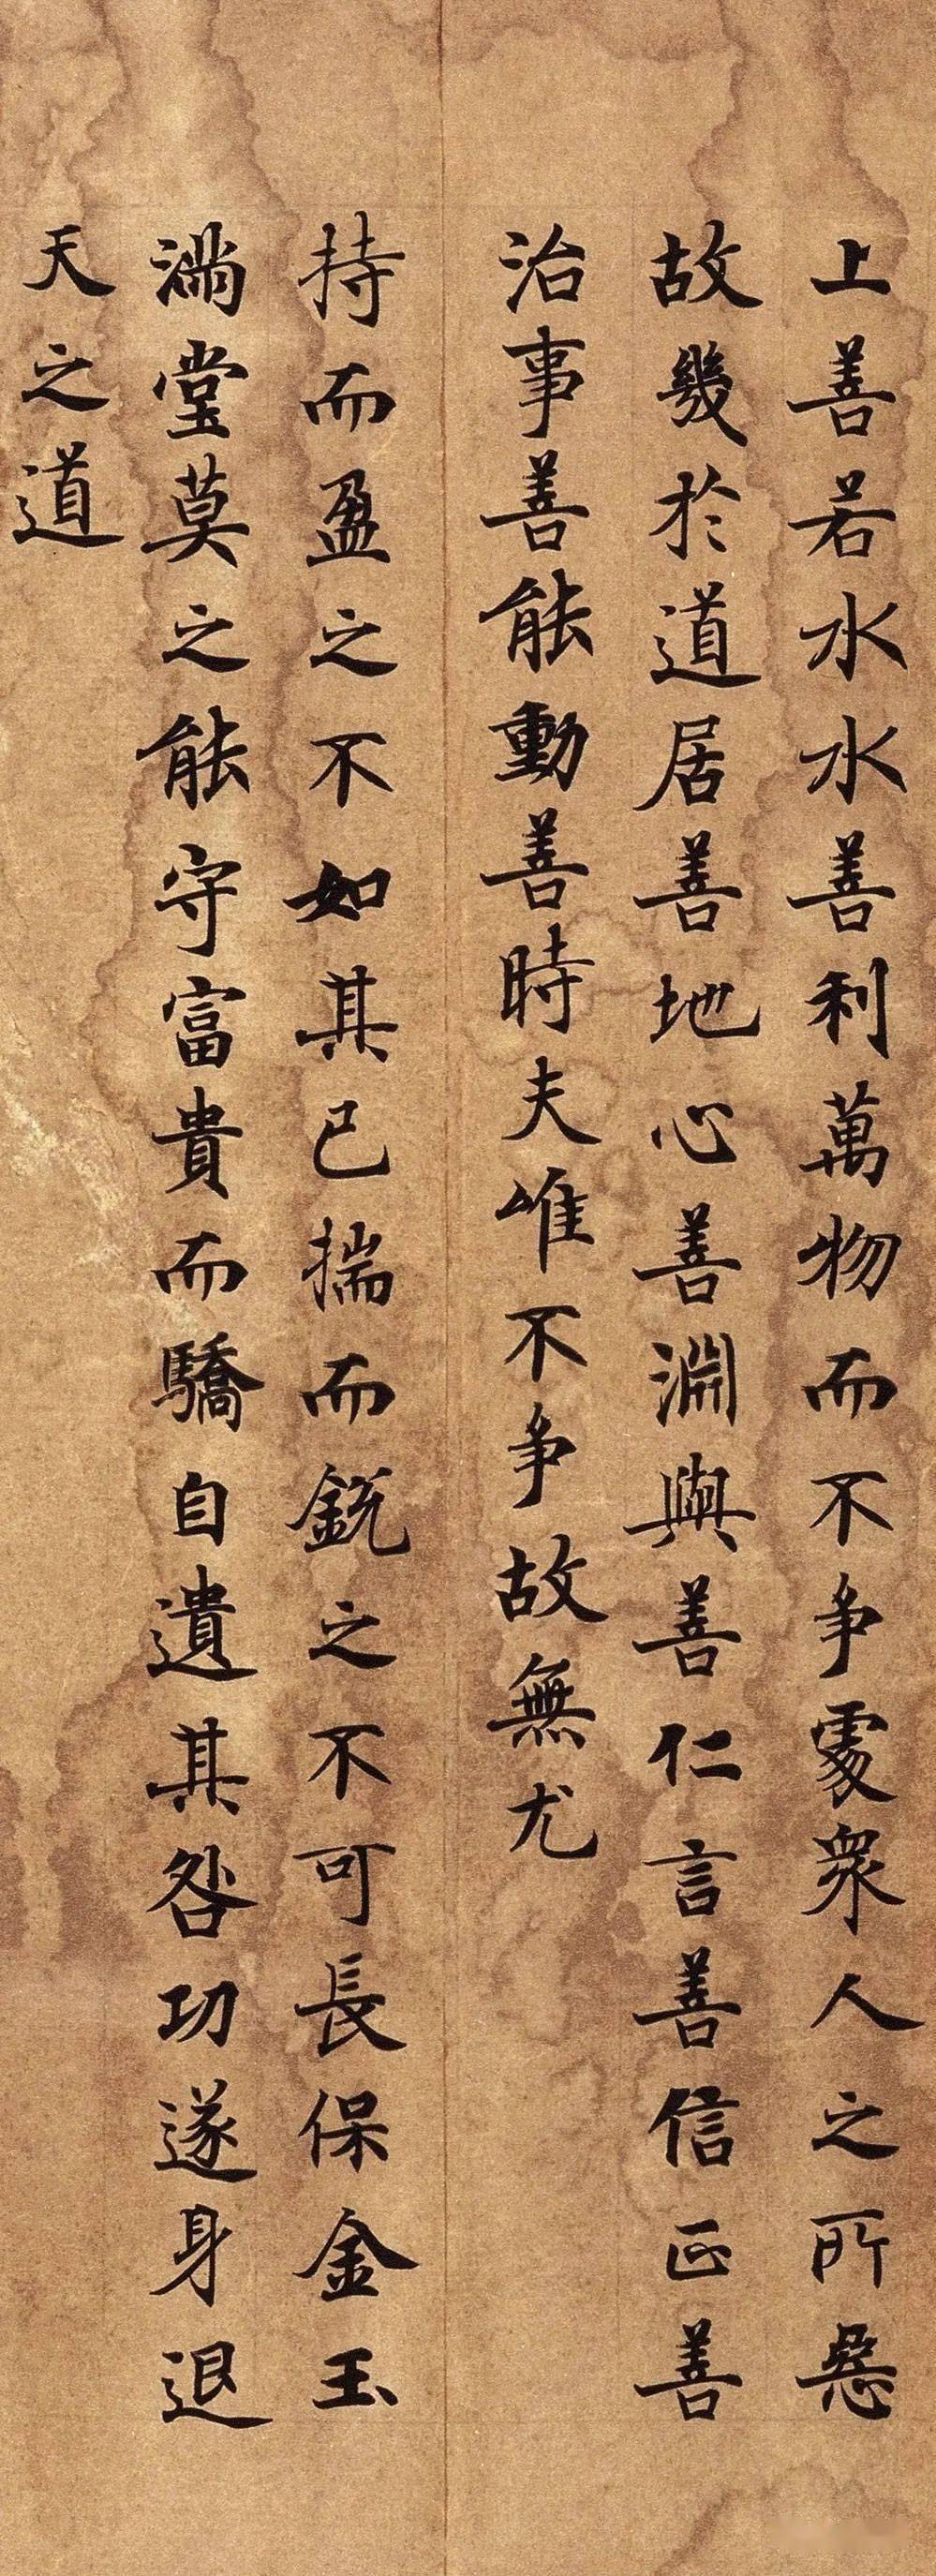 上善若水水善利萬物而不争處衆人之所惡
故幾於道居善地心善淵與善仁言善信正善
治事善能動善時夫唯不争故無尤
持而盈之不如其已揣而銳之不可長保金玉
滿堂莫之能守富貴而驕自遺其咎功遂身退
天之道